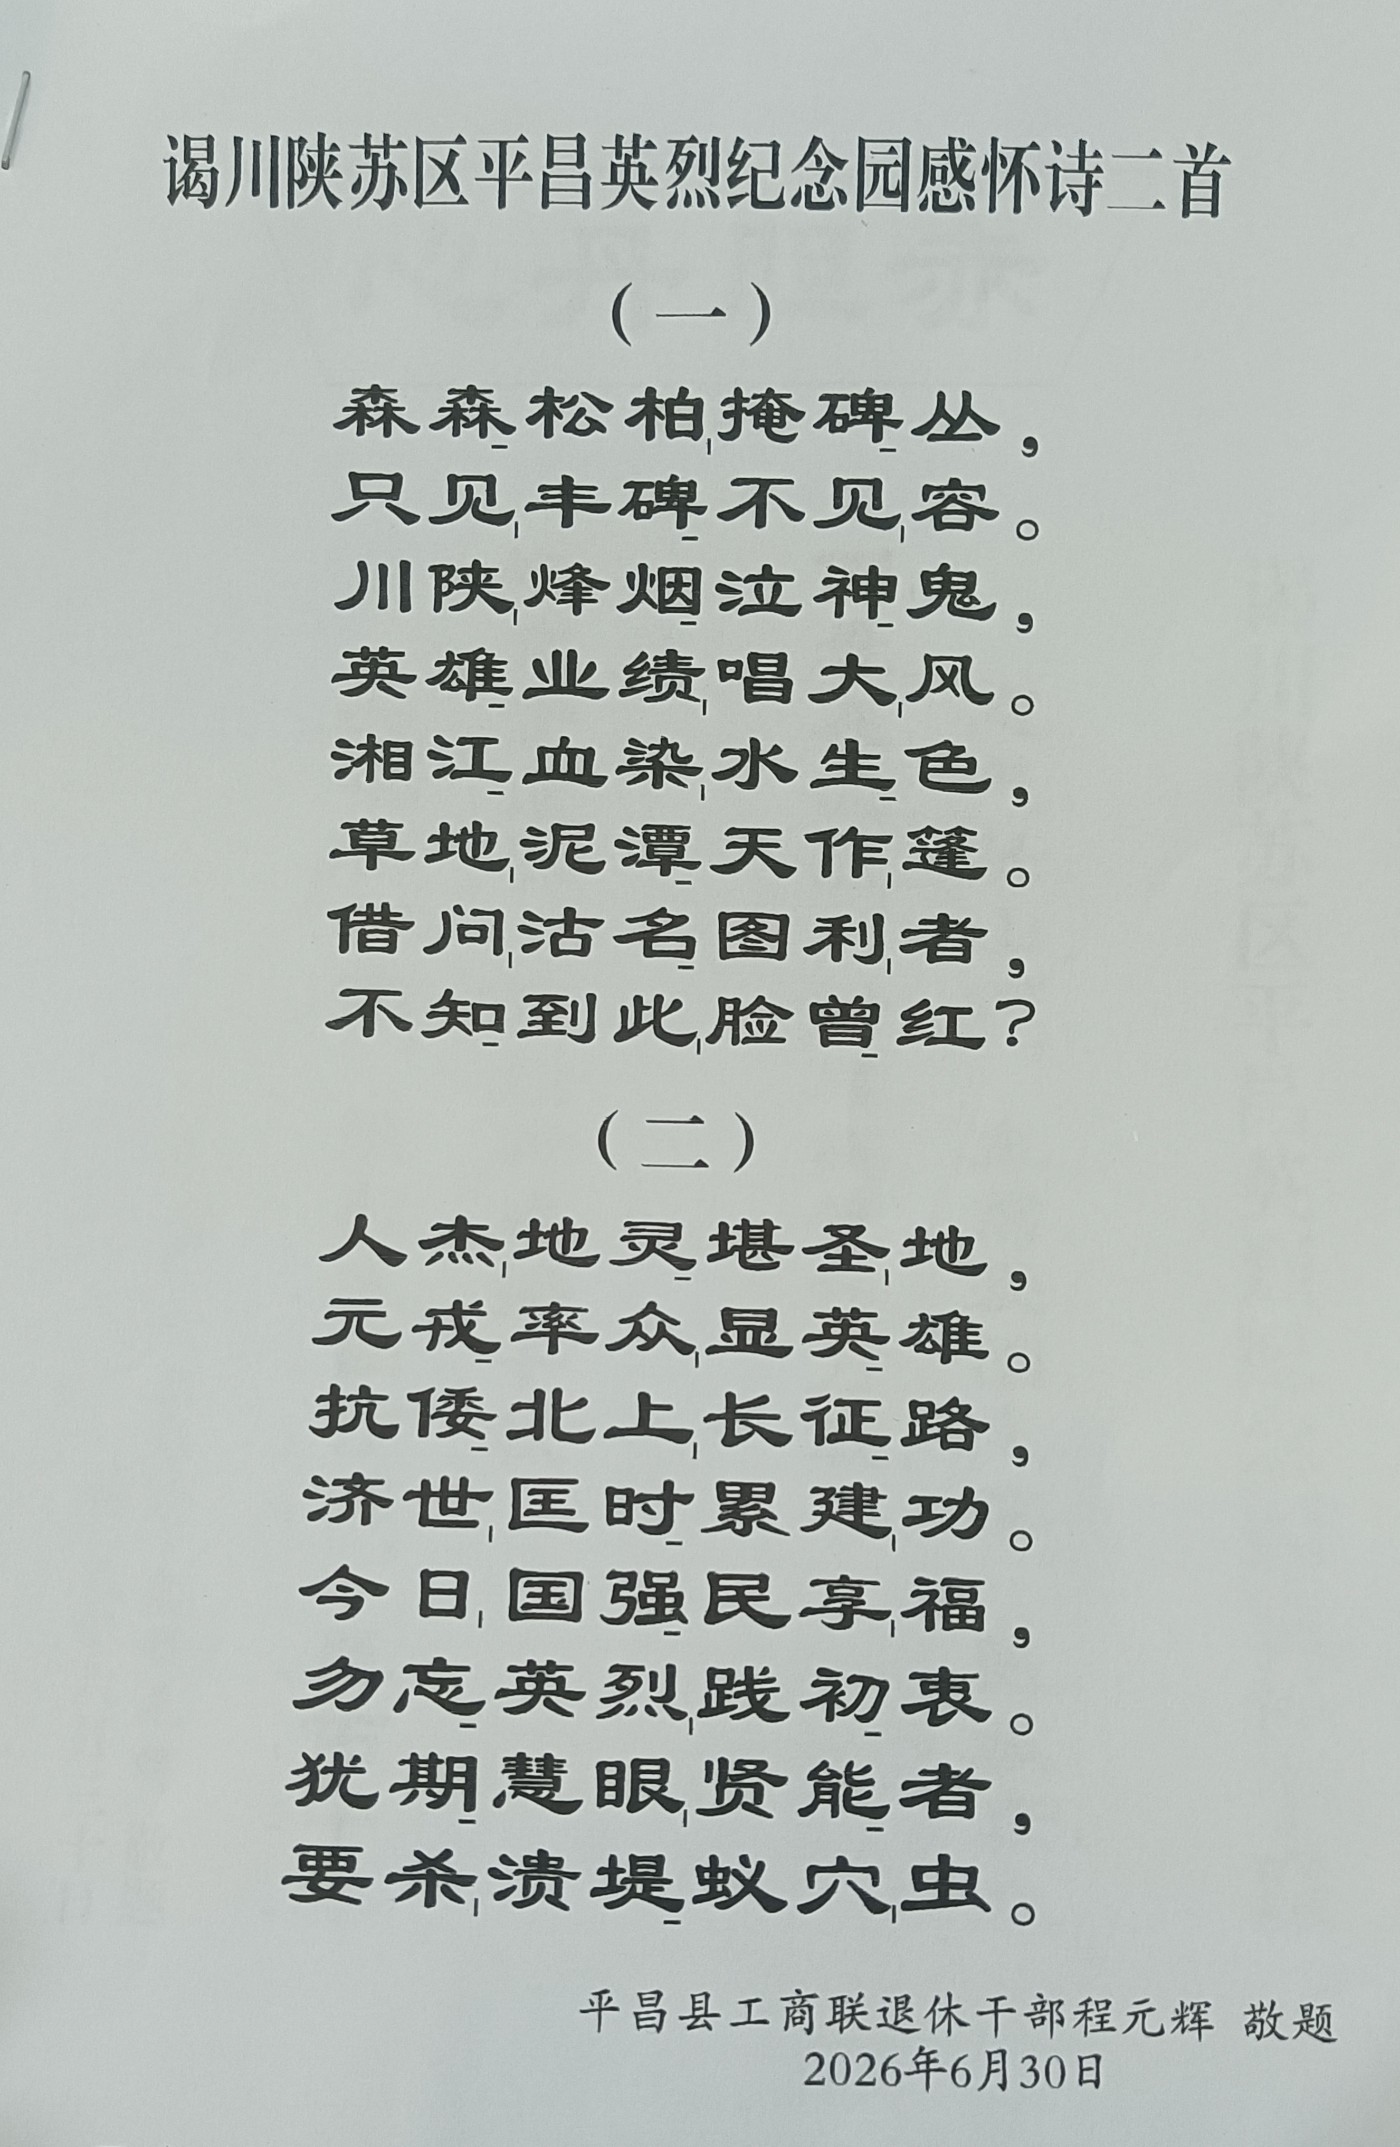 谒川陕苏区平昌英烈纪念园感怀诗二首
（一）
森森松柏掩碑丛，
只见丰碑不见容。
川陕烽烟泣神鬼，
英雄业绩唱大风。
湘江血染水生色，
草地泥潭天作篷。
借问沽名图利者，
不知到此脸曾红？
（二）
人杰地灵堪圣地，
元戎率众显英雄。
抗倭北上长征路，
济世匡时累建功。
今日国强民享福，
勿忘英烈践初衷。
犹期慧眼贤能者，
要杀溃堤蚁穴虫。
平昌县工商联退休干部程元辉 敬题
2026年6月30日